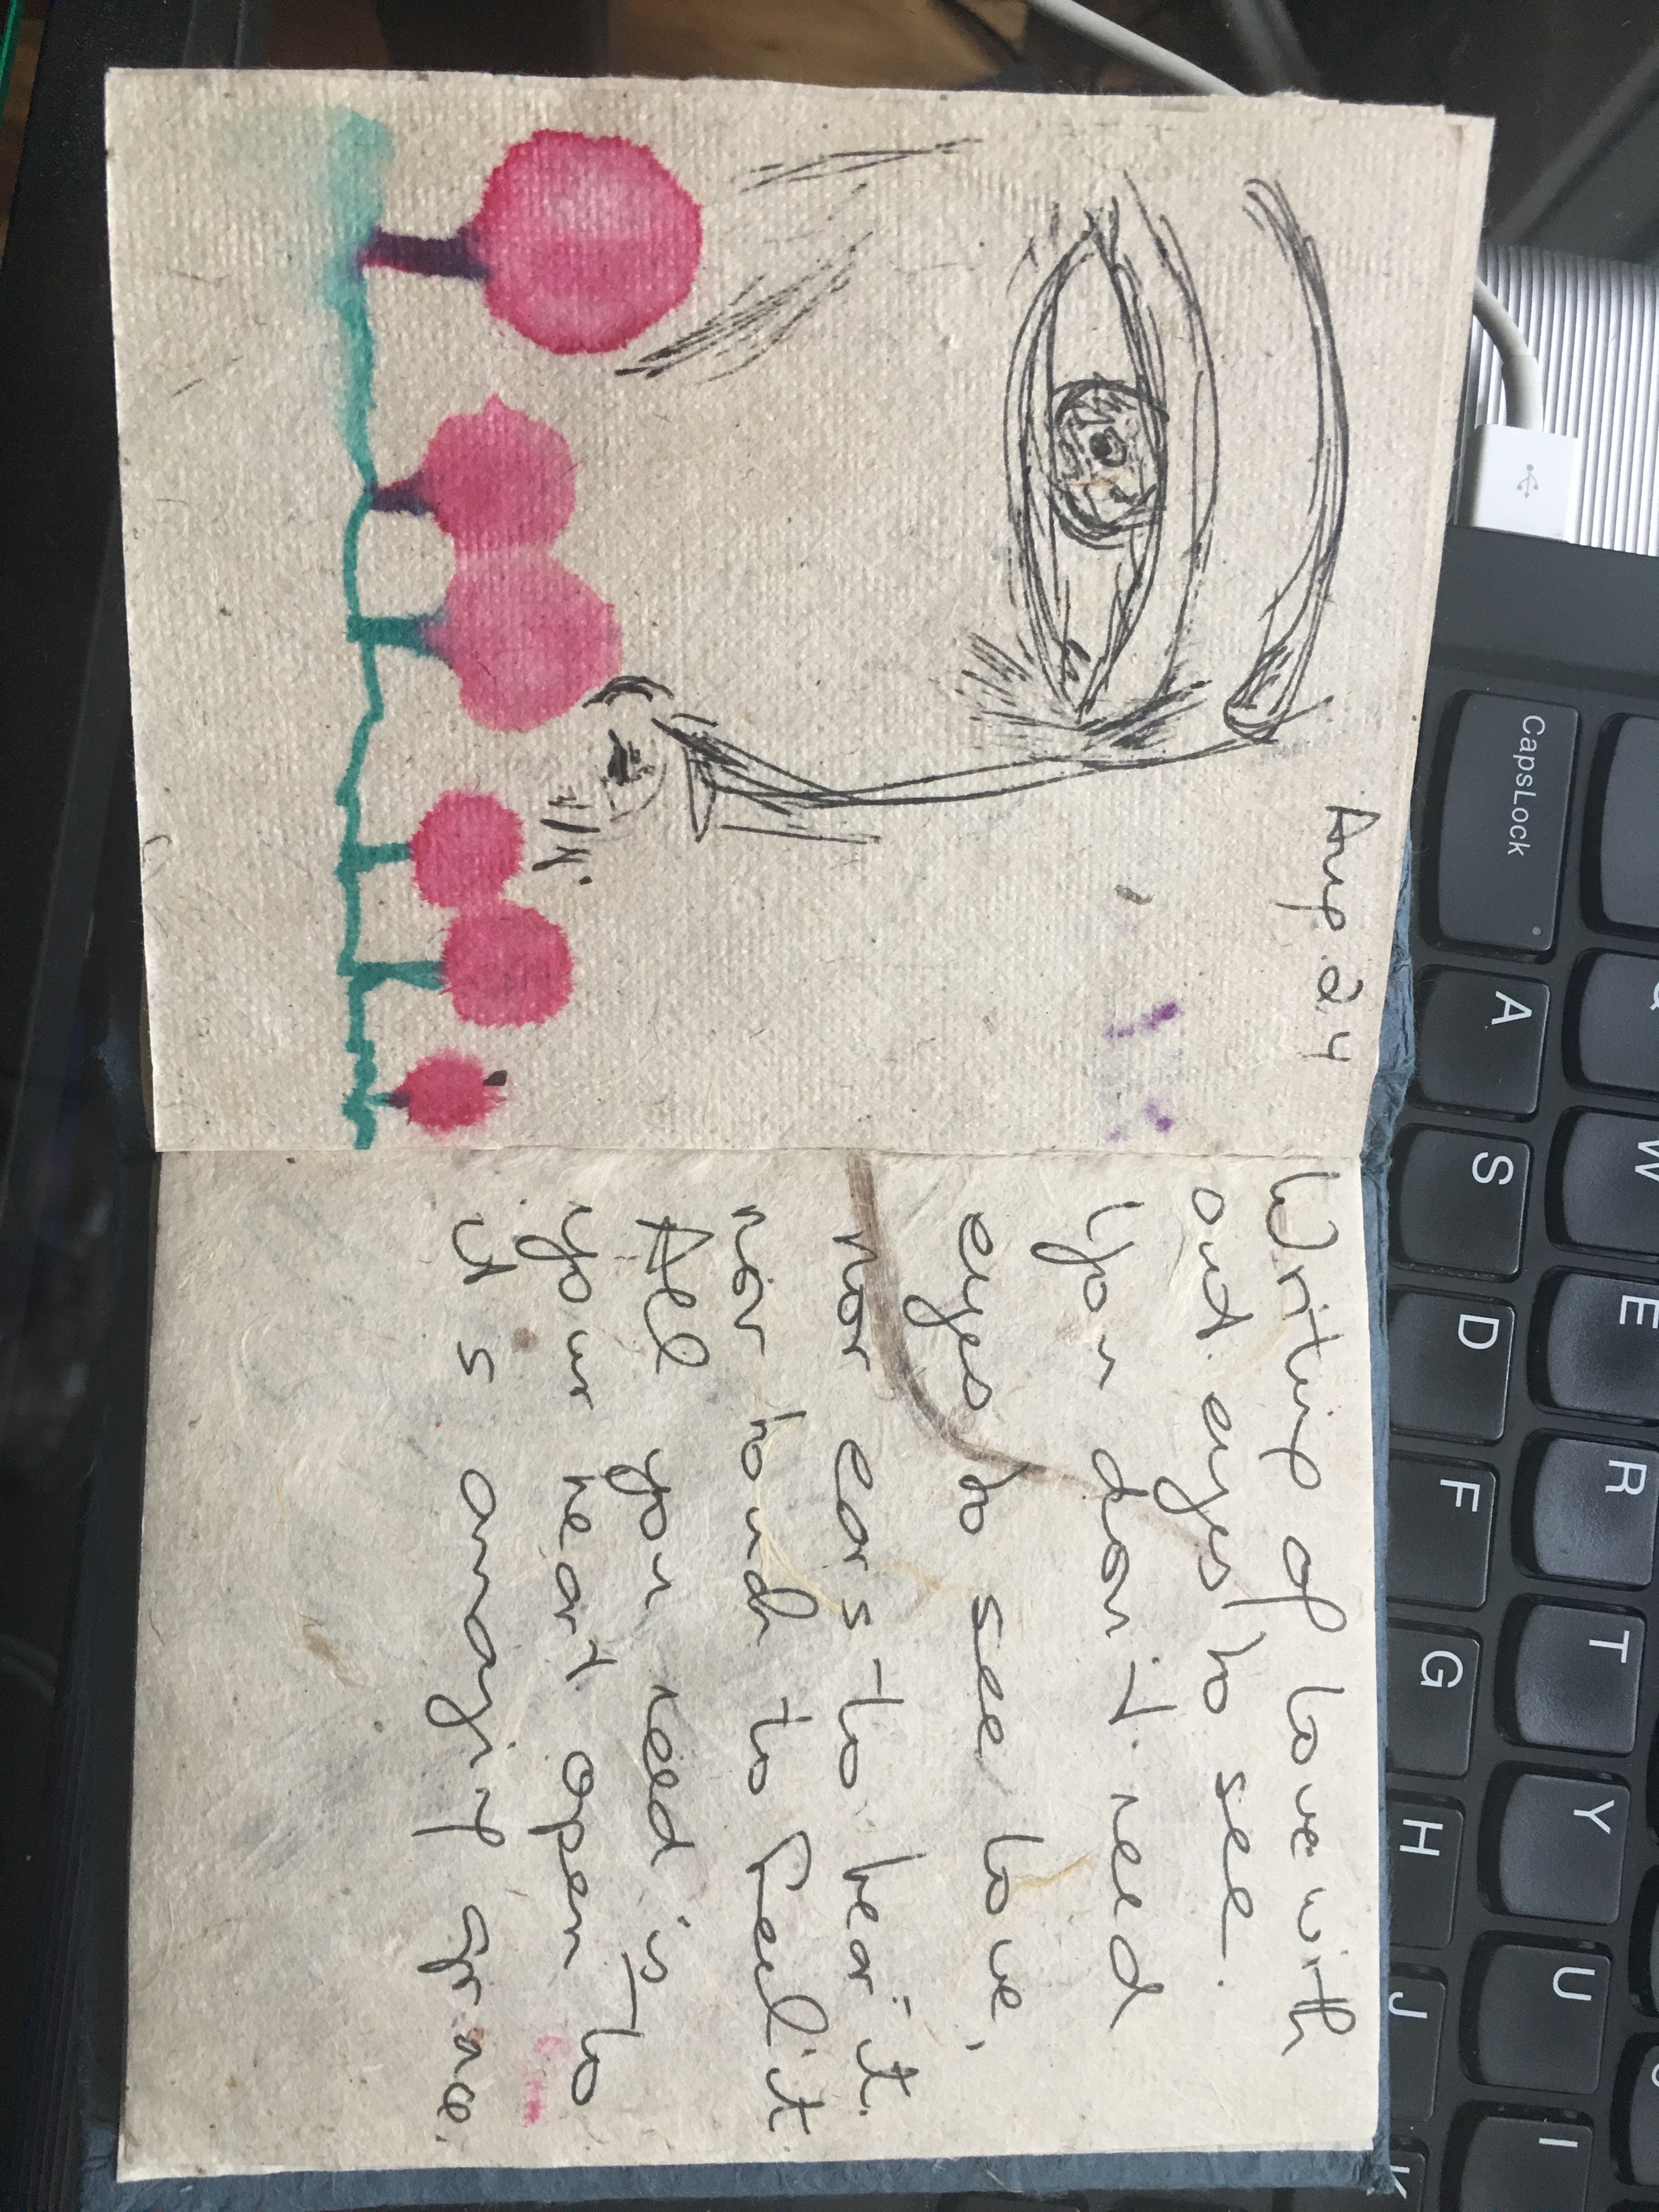 Aug 24
Writing of love with
out eyes to see.
You don't need
eyes to see love,
nor ears to hear it.
nor touch to feel it.
All you need is
your heart open to
it s amazing grace.
CapsLock
Q W E R T Y U I
A S D F G H J K